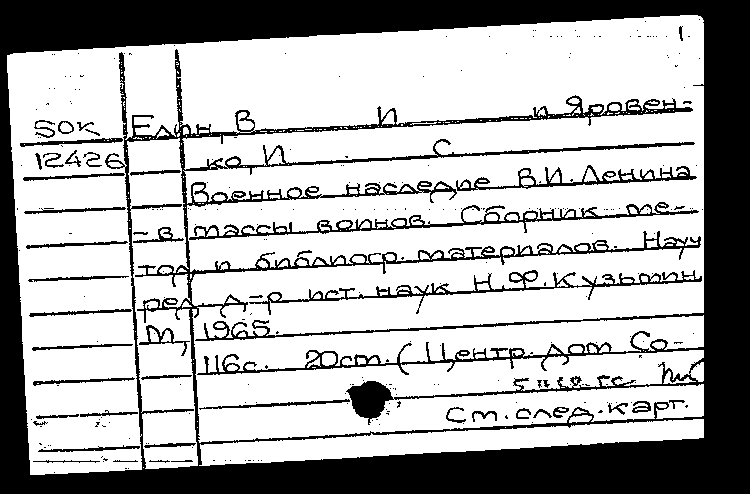 1
SOK Елин, В И и Яровен-
12426 ко, И. С.
Военное наследие В.И. Ленина
- в массы воинов. Сборник ме-
тод. и библиогр. материалов. Науч
ред. д-р ист. наук Н.Ф. Кузьмин
М, 1965.
116с. 20см. (Центр. дом Со-
См. след. карт.